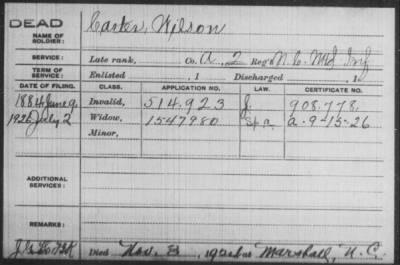 DEAD
NAME OF SOLDIER: Carter, Wilson
SERVICE: Late rank, Co. A, 2 Reg't N.C. Mtd Inf
TERM OF SERVICE: Enlisted , 1 Discharged , 1
DATE OF FILING. CLASS. APPLICATION NO. LAW. CERTIFICATE NO.
1884 June 9. Invalid, 514.923 J. 908.778.
1926 July 2 Widow, 1547980 a-9-15-26
Minor,
ADDITIONAL SERVICES:
REMARKS:
Died Nov. 3, at Marshall, N.C.